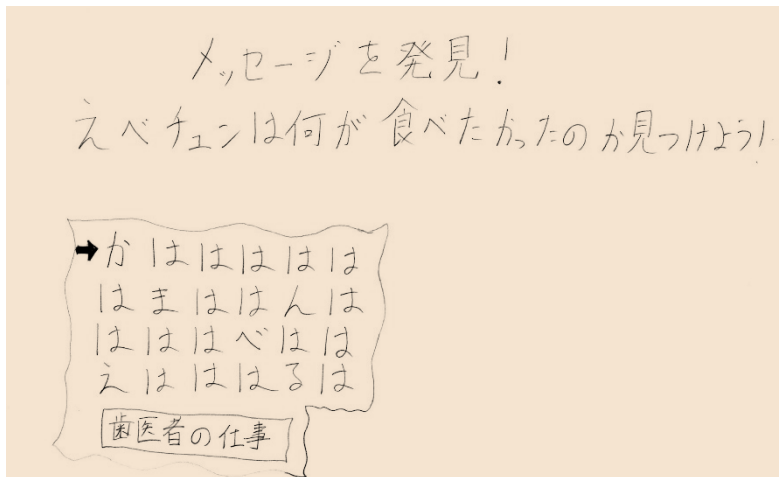 メッセージを発見!
えべチェンは何が食べたかったのか見つけよう!
かははははは
はまははんは
はははべはは
えはははるは
歯医者の仕事